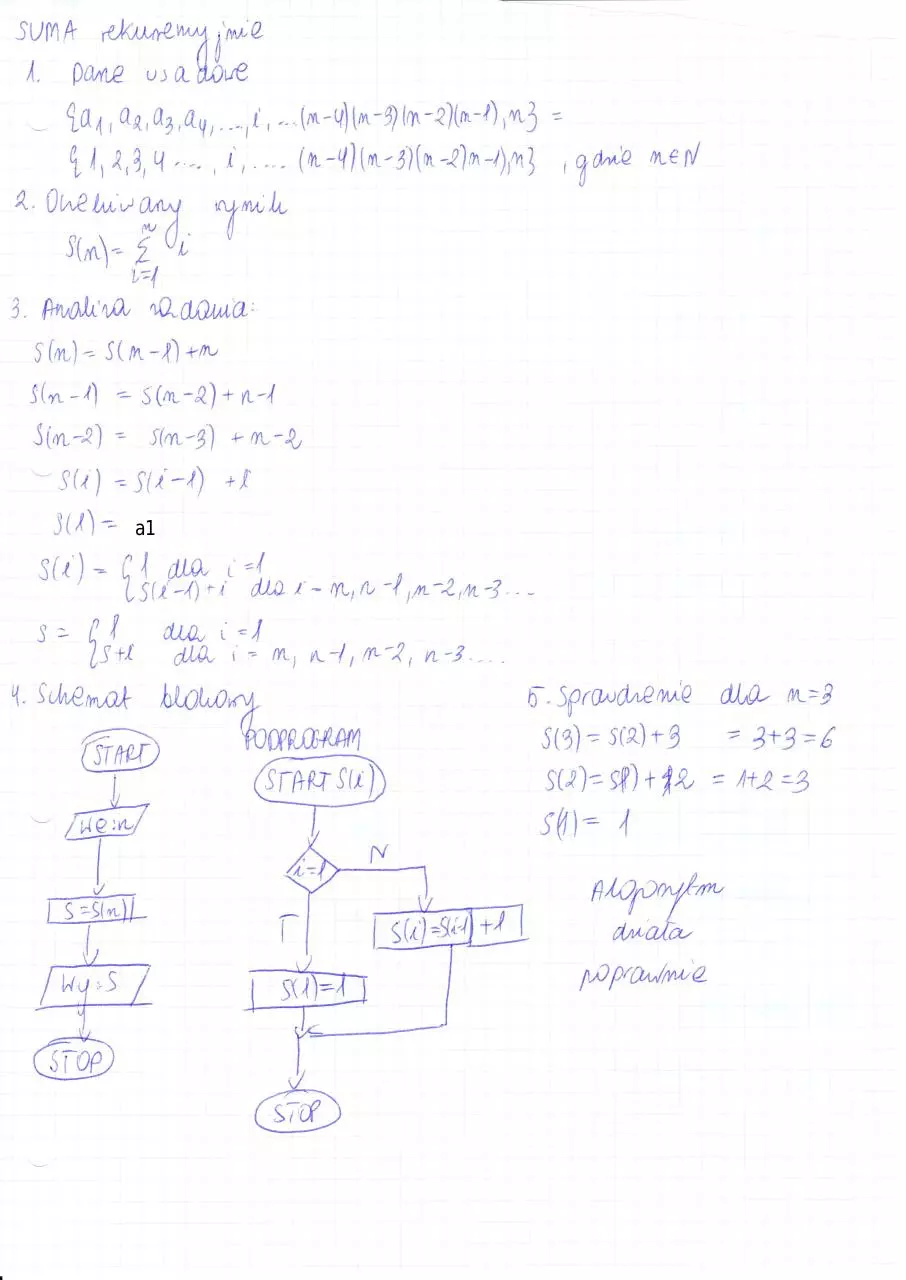 SUMA rekurencyjnie
1. Dane wsadowe
{a1, a2, a3, a4, ..., i, ...(n-4)(n-3)(n-2)(n-1), n} =
{1, 2, 3, 4 ...., i, .... (n-4)(n-3)(n-2)n-1), n} , gdzie n∈N
2. Oczekiwany wynik
S(n) = n Σ i=1 i
3. Analiza zadania:
S(n) = S(n-1) + n
S(n-1) = S(n-2) + n-1
S(n-2) = S(n-3) + n-2
S(i) = S(i-1) + i
S(1) = a1
S(i) = { 1 dla i = 1
{ S(i-1)+i dla i = n, n-1, n-2, n-3 ...
S = { 1 dla i = 1
{ S+i dla i = n, n-1, n-2, n-3....
4. Schemat blokowy
START
We:n
S = S(n)
Wy: S
STOP
PODPROGRAM
START S(i)
i=1
N
T
S(i)=S(i-1) + i
S(1) = 1
STOP
5. Sprawdzenie dla n=3
S(3) = S(2) + 3 = 3+3 = 6
S(2) = S(1) + 2 = 1+2 = 3
S(1) = 1
Algorytm
działa
poprawnie